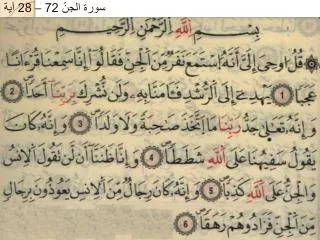 سورة الجنّ 72 – 28 آية
بِسْمِ اللَّهِ الرَّحْمَٰنِ الرَّحِيمِ
قُلْ أُوحِيَ إِلَيَّ أَنَّهُ اسْتَمَعَ نَفَرٌ مِّنَ الْجِنِّ فَقَالُوا إِنَّا سَمِعْنَا قُرْءَانًا
عَجَبًا 1 يَهْدِي إِلَى الرُّشْدِ فَـَٔامَنَّا بِهِ وَلَن نُّشْرِكَ بِرَبِّنَا أَحَدًا 2
وَإِنَّهُ تَعَالَى جَدُّ رَبِّنَا مَا اتَّخَذَ صَاحِبَةً وَلَا وَلَدًا 3 وَإِنَّهُ كَانَ
يَقُولُ سَفِيهُنَا عَلَى اللَّهِ شَطَطًا 4 وَإِنَّا ظَنَنَّا أَن لَّن تَقُولَ الْإِنسُ
وَالْجِنُّ عَلَى اللَّهِ كَذِبًا 5 وَإِنَّهُ كَانَ رِجَالٌ مِّنَ الْإِنسِ يَعُوذُونَ بِرِجَالٍ
مِّنَ الْجِنِّ فَزَادُوهُمْ رَهَقًا 6